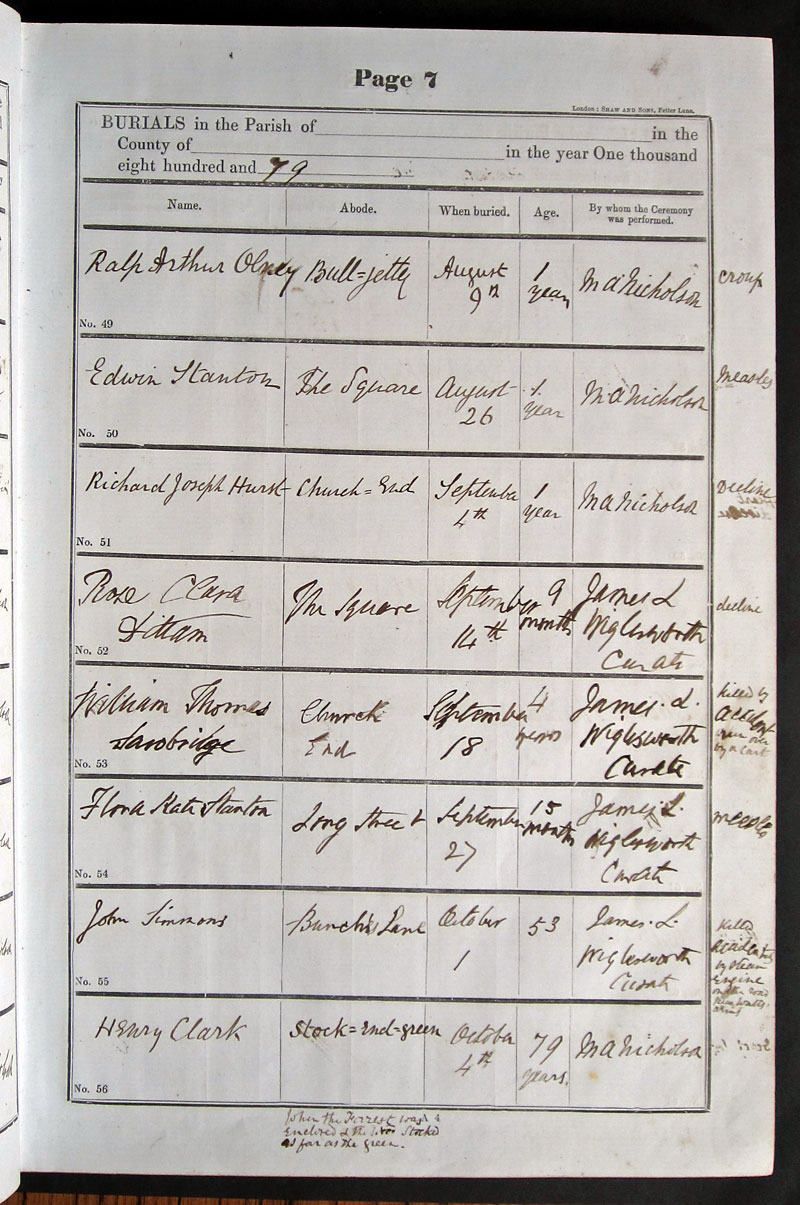 Page 7
London: SHAW AND SONS, Fetter Lane.
BURIALS in the Parish of in the
County of in the year One thousand
eight hundred and 79
Name. Abode. When buried. Age. By whom the Ceremony was performed.
Ralph Arthur Olney Bull=jetty August 1 M A Nicholson croup
9th year
No. 49
Edwin Stanton The Square August 1 M A Nicholson Measles
26 year
No. 50
Richard Joseph Hurst Church=End September 1 M A Nicholson Decline
4th year
No. 51
Rose Clara The Square September 9 James L decline
Titam 14th months Wiglesworth
No. 52 Curate
William Thomas Church September 4 James L. killed by
Sawbridge End 18 years Wiglesworth accident
No. 53 Curate run over
by a cart
Flora Kate Stanton Long Street September 15 James L. meesles
27 months Wiglesworth
No. 54 Curate
John Simmons Bunch's Lane October 53 James L. killed
1 Wiglesworth
No. 55 Curate by steam
Engine
on the road
Henry Clark Stock=end=green October 79 M A Nicholson
4th years.
No. 56
when the Forrest was
Enclosed & the Stocked
as far as the green.